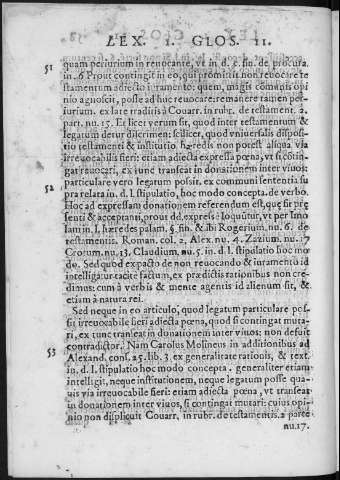 LEX. I. GLOS. II.
51
quam periurium in reuocante, vt in d. c. fin. de procura.
in. 6 Prout contingit in eo, qui promisit non reuocare te
stamentum adiecto iuramento: quem, magis communis opi
nio agnoscit, posse ad huc reuocare: remanere tamen per-
iurium. ex late traditis à Couarr. in rubr. de testament. 2.
part. nu. 15. Et licet verum sit, quod inter testamentum &
legatum detur discrimen: scilicet, quod vniuersalis disposi
tio testamenti & institutio hæredis non potest aliqua via
irreuocabilis fieri: etiam adiecta expressa pœna, vt si contin-
gat reuocari, ex tunc transeat in donationem inter viuos:
particulare vero legatum possit, ex communi sententia su
52
pra relata in. d. l. stipulatio, hoc modo concepta. de verbo.
Hoc ad expressam donationem referendum est, quæ sit præ
senti & acceptanti, prout dd. expresse loquūtur, vt per Imo
lam in. l. hæredes palam. §. fin. & ibi Rogerium, nu. 6. de
testamentis. Roman. col. 2. Alex. nu. 4. Zazium. nu. 17
Crotum. nu. 13. Claudium. nu. 5. in. d. l. stipulatio hoc mo
do. Sed quod ex pacto de non reuocando & iuramento id
intelligatur tacite factum, ex prædictis rationibus non cre-
dimus: cum à verbis & mente agentis id alienum sit, &
etiam à natura rei.
Sed neque in eo articulo, quod legatum particulare pos-
sit irreuocabile fieri adiecta pœna, quod si contingat muta-
ri, ex tunc transeat in donationem inter viuos: non defuit
53
contradictor. Nam Carolus Molineus in additionibus ad
Alexand. cons. 25. lib. 3. ex generalitate rationis, & text.
in. d. l. stipulatio hoc modo concepta. generaliter etiam
intelligit, neque institutionem, neque legatum posse qua-
uis via irreuocabile fieri: etiam adiecta pœna, vt transeat
in donationem inter viuos, si contingat mutari: cuius opi-
nio non displicuit Couarr. in rubr. de testamentis. 2 parte
nu. 17.